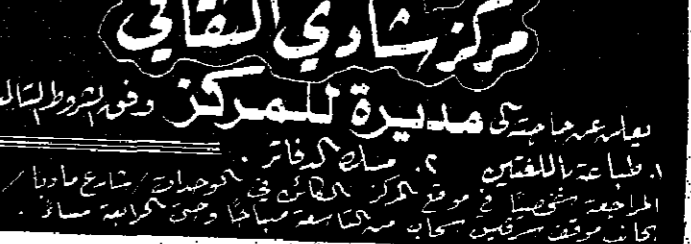 مركز شادي الثقافي
يعلن عن حاجته الى مديرة للمركز وفق الشروط التالية
١. طباعة باللغتين ٢. مسك الدفاتر .
المراجعة شخصيا في موقع المركز الكائن في الوحدات / شارع مادبا /
بجانب موقف سرفيس سحاب من التاسعة صباحا وحتى الرابعة مساء .